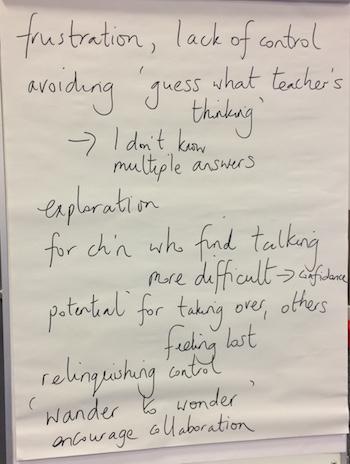 frustration, lack of control
avoiding 'guess what teacher's
thinking'
→ I don't know
multiple answers
exploration
for ch'n who find talking
more difficult → confidence
potential for taking over, others
feeling lost
relinquishing control
'wander to wonder'
encourage collaboration